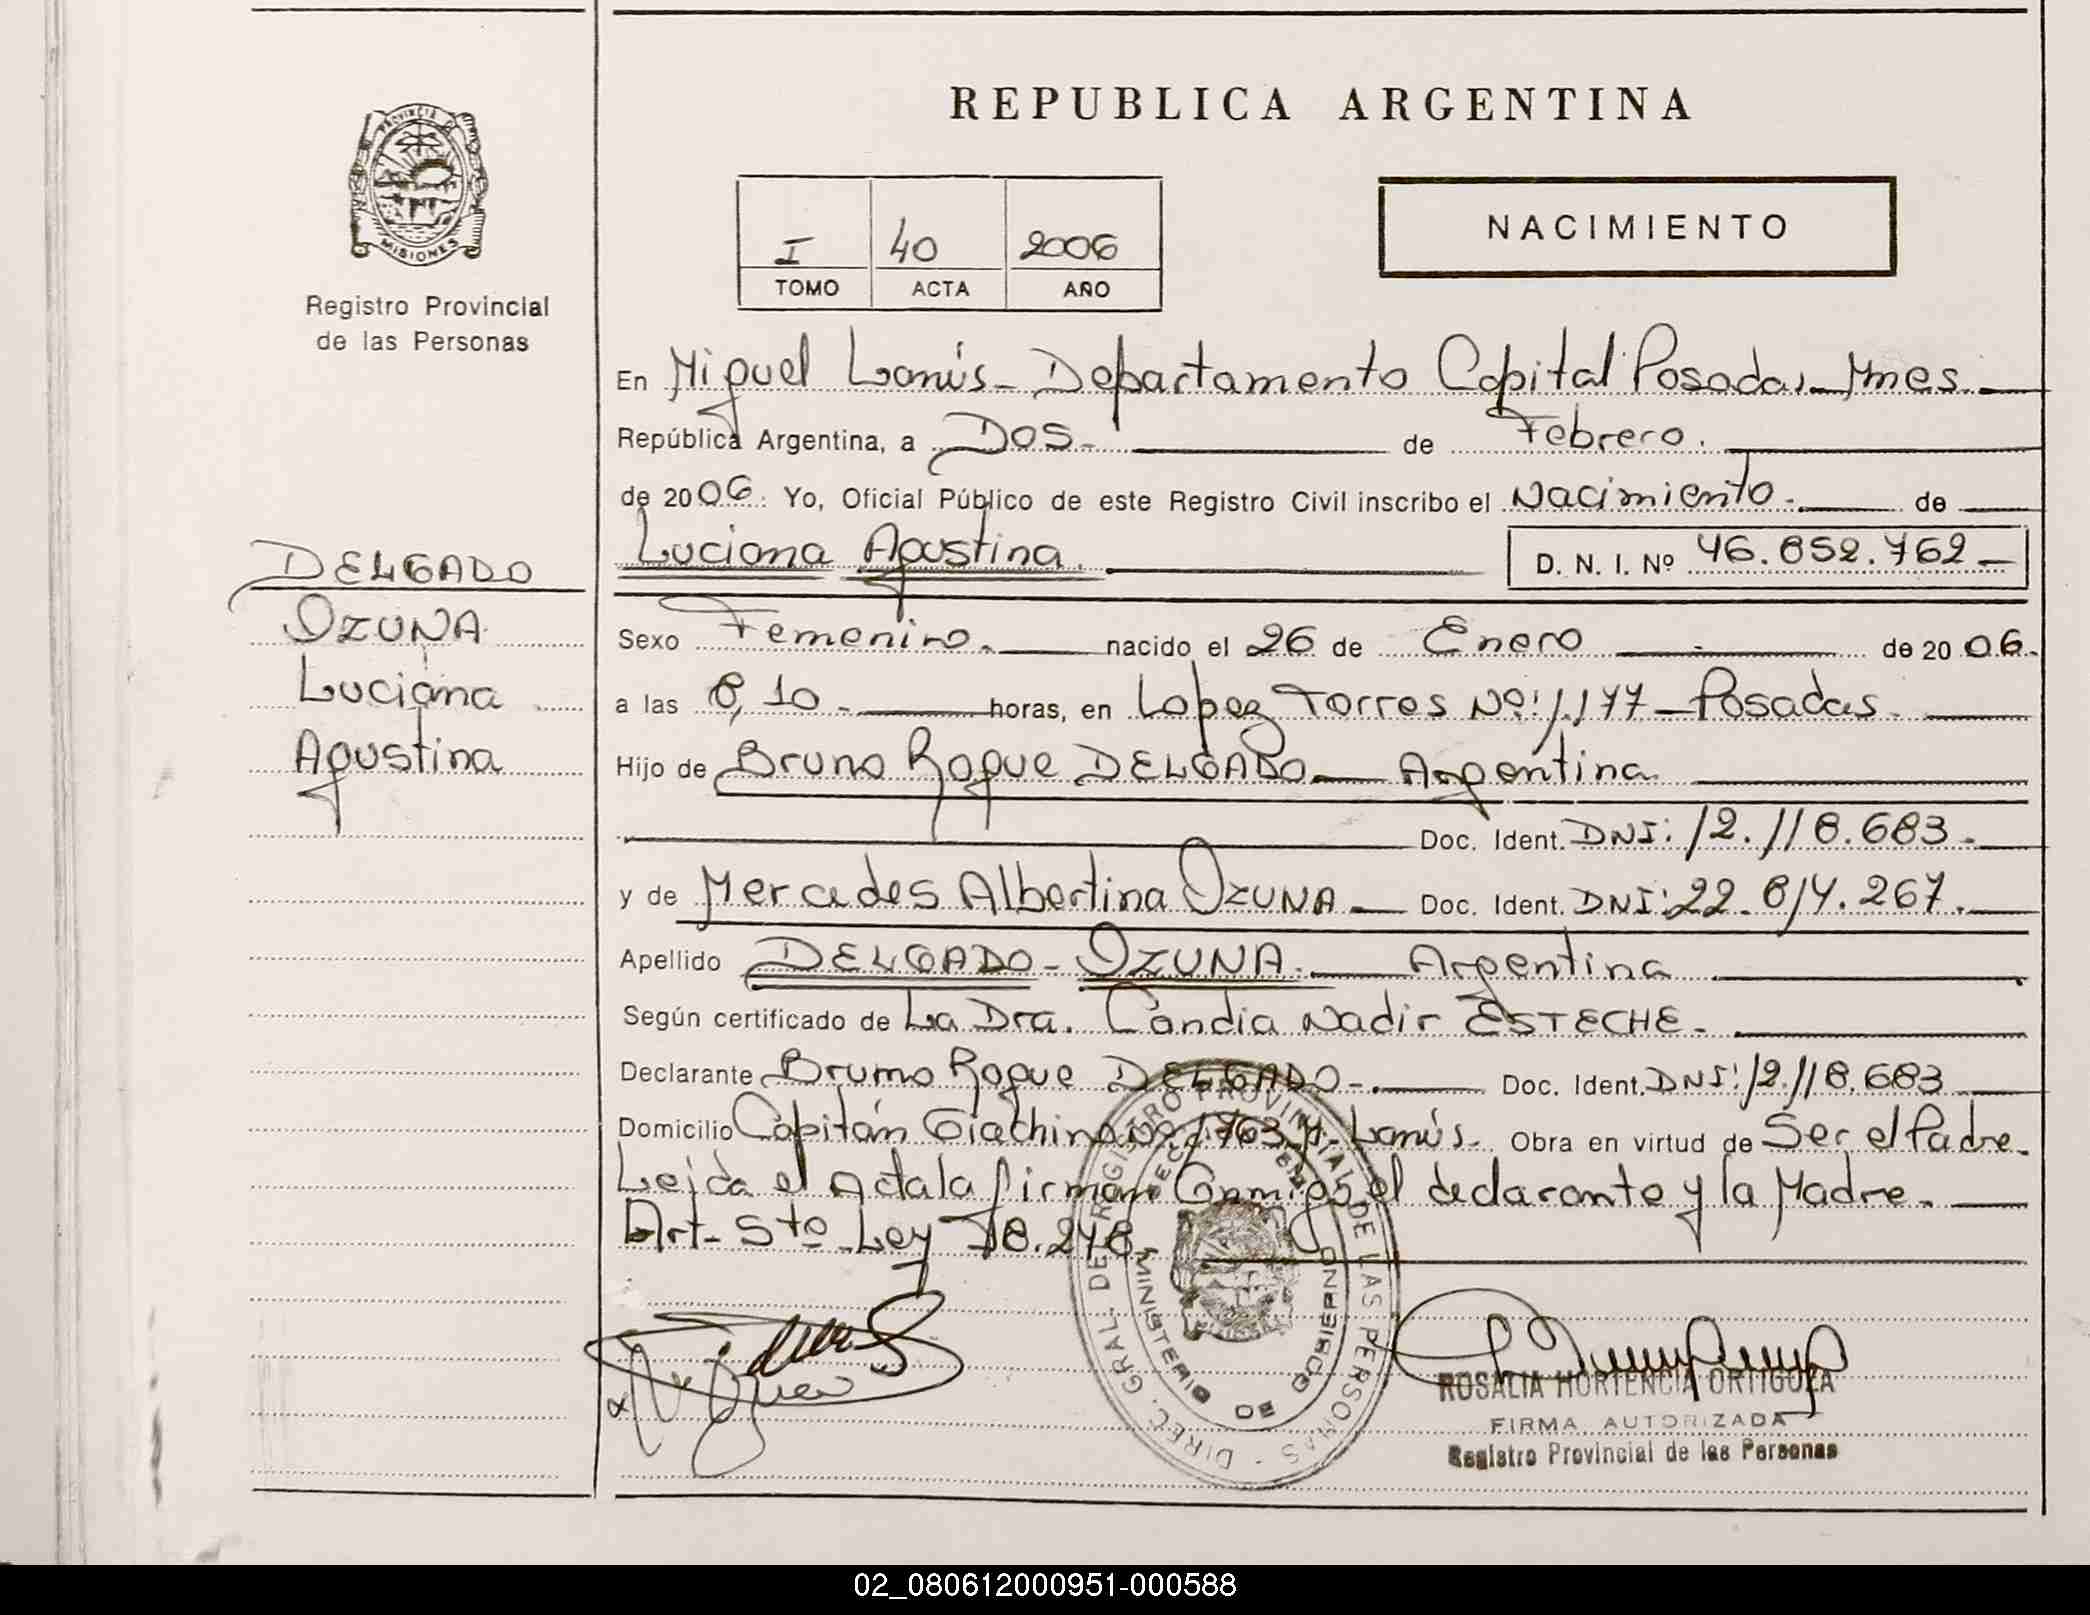 REPUBLICA ARGENTINA
PROVINCIA DE
MISIONES
Registro Provincial
de las Personas
I 40 2006
TOMO ACTA AÑO
NACIMIENTO
En Miguel Lanús - Departamento Capital Posadas - Mnes.
República Argentina, a Dos. de Febrero.
de 2006. Yo, Oficial Público de este Registro Civil inscribo el Nacimiento. de
Luciana Agustina. D. N. I. Nº 46.852.762
DELGADO
OZUNA
Luciana
Agustina
Sexo Femenino. nacido el 26 de Enero de 2006.
a las 8,10 horas, en Lopez Torres Nº: 1.177 - Posadas.
Hijo de Bruno Roque DELGADO Argentina.
Doc. Ident. DNI: 12.118.683.
y de Mercedes Albertina OZUNA Doc. Ident. DNI: 22.814.267.
Apellido DELGADO - OZUNA. Argentina
Según certificado de La Dra. Candia Nadir ESTECHE.
Declarante Bruno Roque DELGADO Doc. Ident. DNI: 12.118.683
Domicilio Capitán Giachino Nº 1763 M. Lanús. Obra en virtud de Ser el Padre.
Leida el Acta la firman Conmigo el declarante y la Madre.
Art- 5to Ley 18.248.
DIREC. GRAL. DE REGISTRO PROVINCIAL DE LAS PERSONAS
MINISTERIO DE GOBIERNO
ROSALIA HORTENCIA ORTIGOZA
FIRMA AUTORIZADA
Registro Provincial de las Personas
02_080612000951-000588